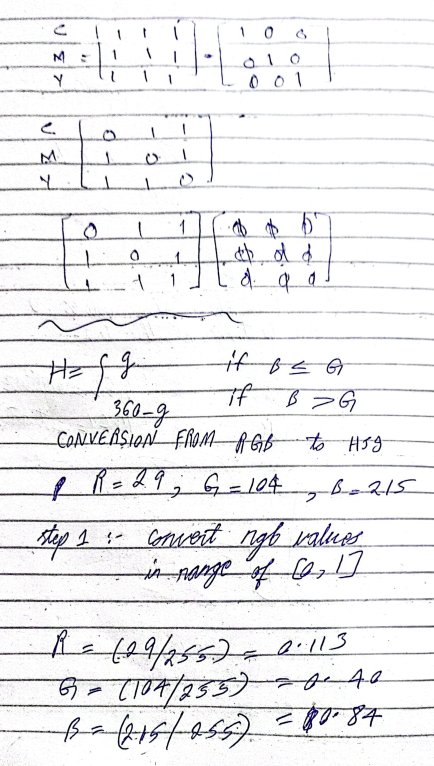 C 1 1 1 1 1 0 0
M = 1 1 1 - 0 1 0
Y 1 1 1 0 0 1
C 0 1 1
M 1 0 1
Y 1 1 0
0 1 1
1 0 1
1 1 1
H = { g if B ≤ G
360-g if B > G
CONVERSION FROM RGB to HSI
R = 29, G = 104, B = 215
step 1 :- convert rgb values
in range of [0, 1]
R = (29/255) = 0.113
G = (104/255) = 0.40
B = (215/255) = 0.84